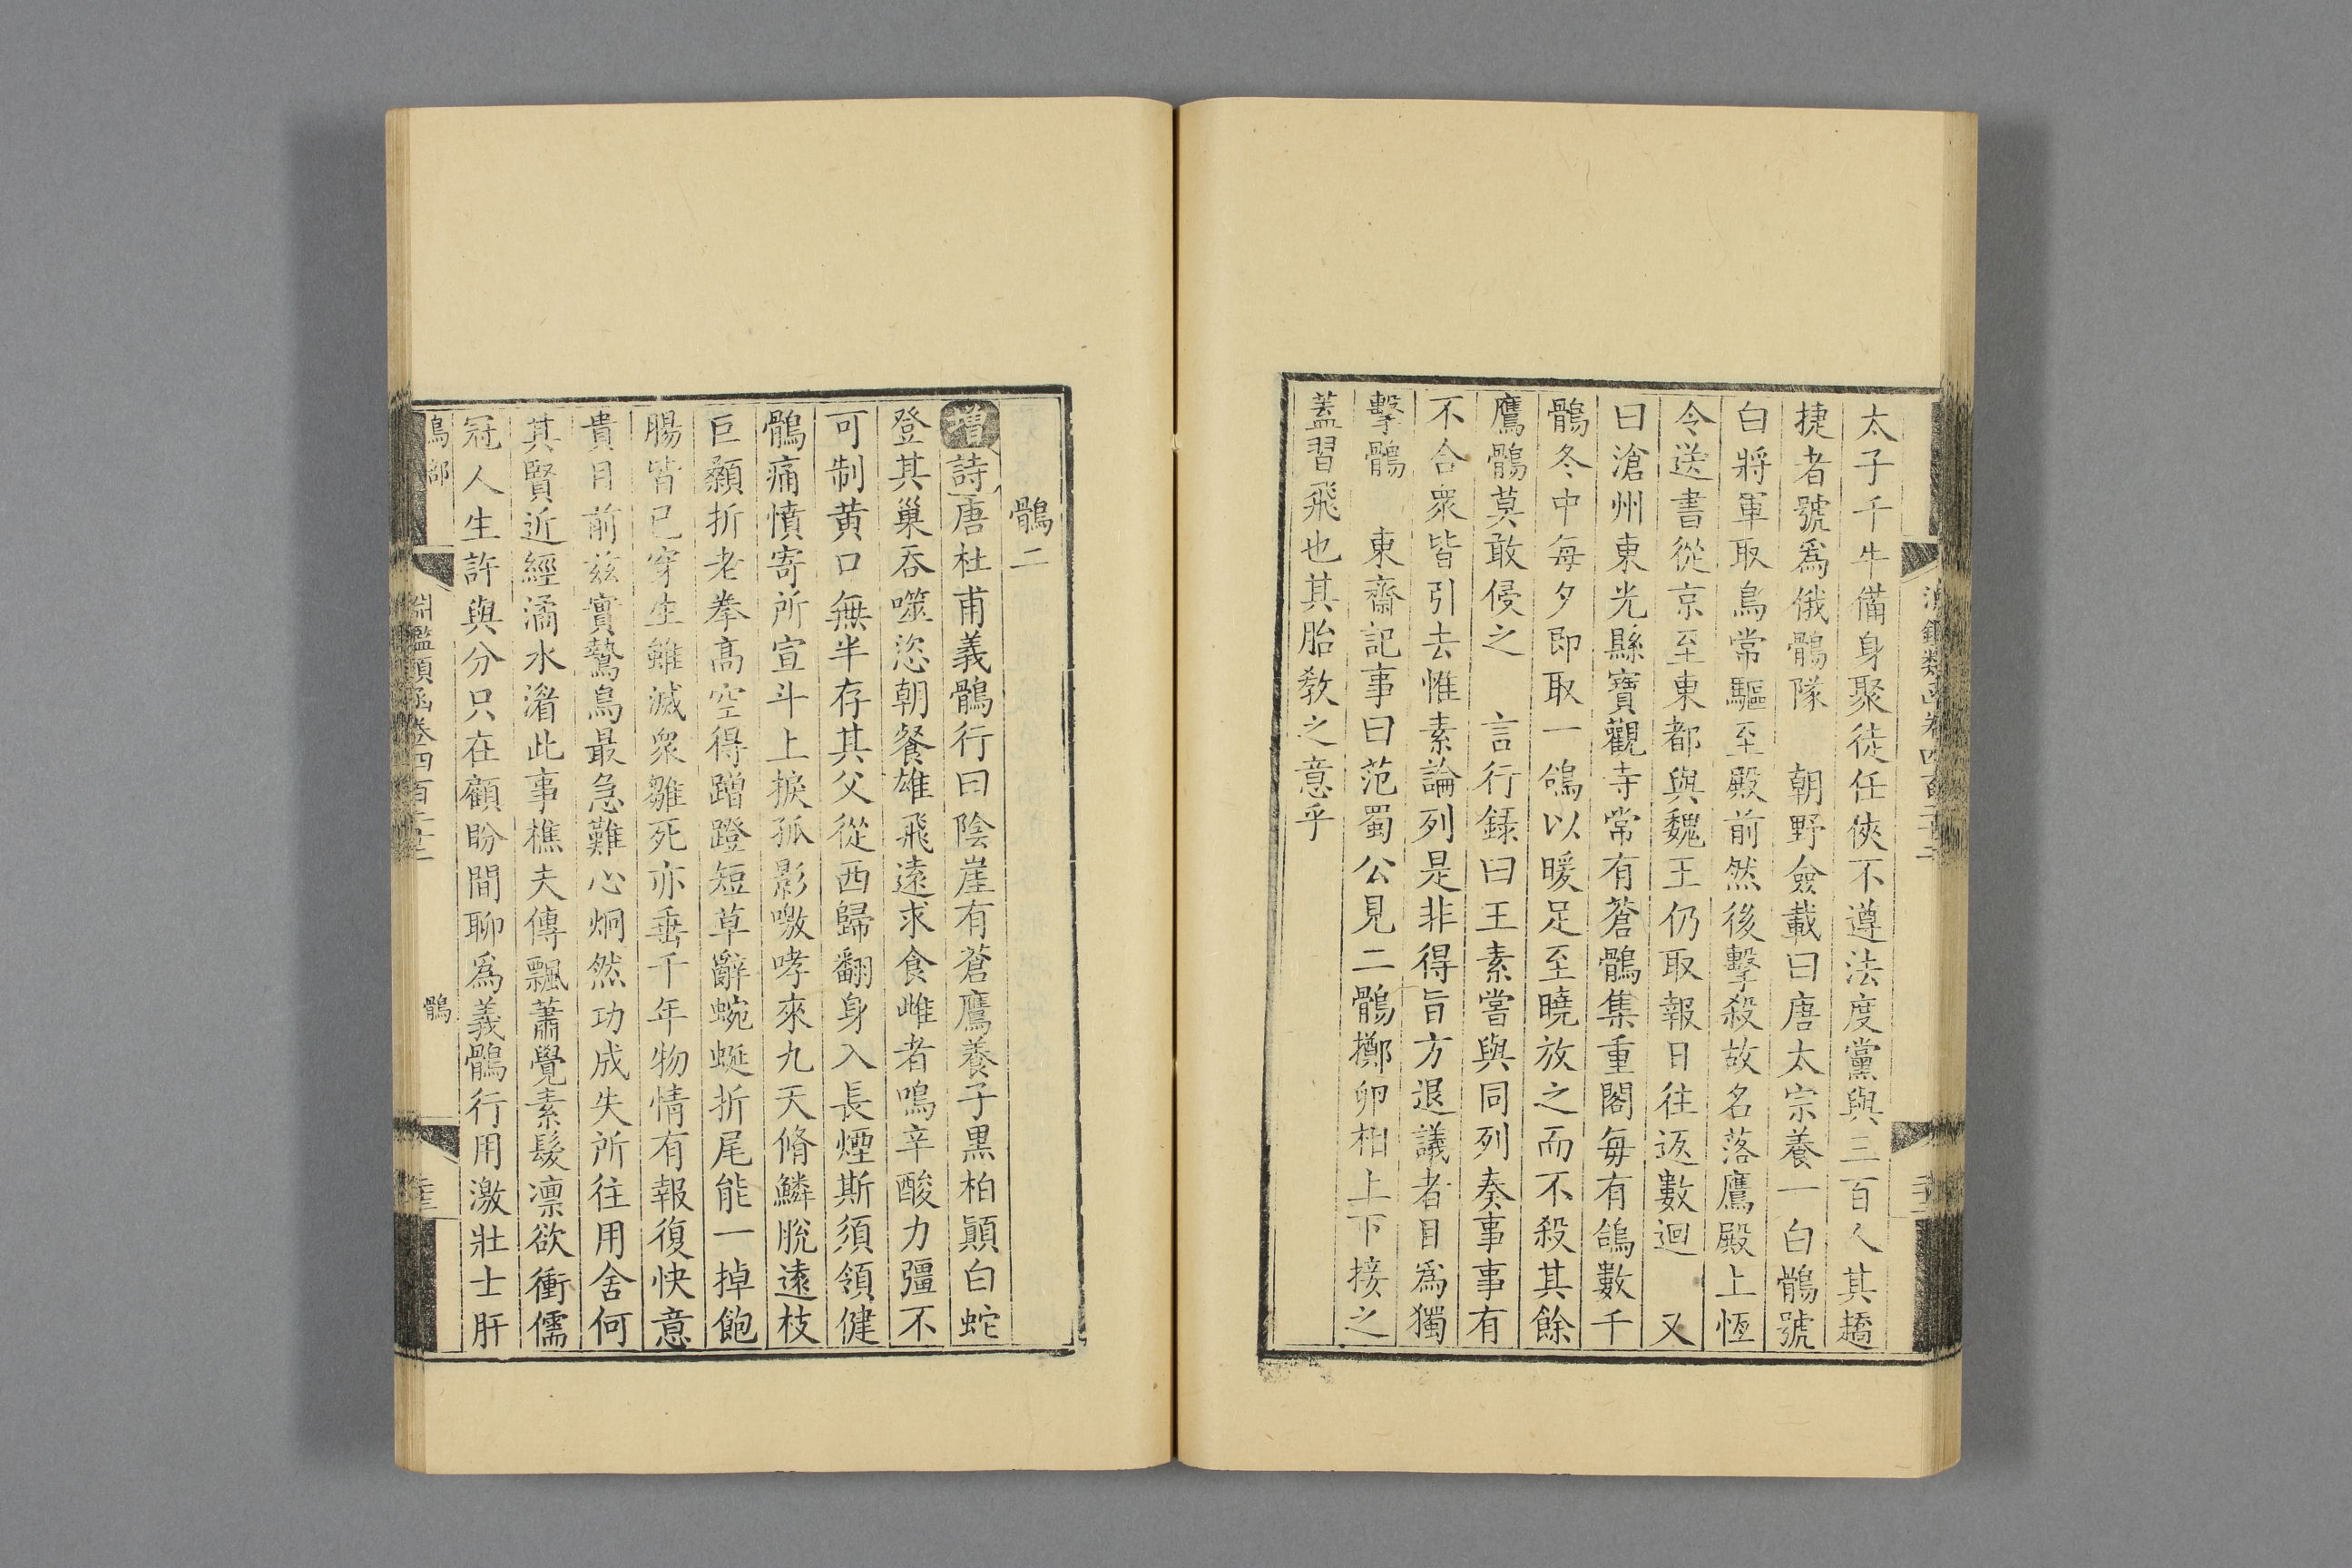 太子千牛備身聚徒任俠不遵法度黨與三百人其趫
捷者號爲俄鶻隊　朝野僉載曰唐太宗養一白鶻號
白將軍取鳥常驅至殿前然後擊殺故名落鴈殿上恆
令送書從京至東都與魏王仍取報日往返數迴　又
曰滄州東光縣寶觀寺常有蒼鶻集重閣每有鴿數千
鶻冬中每夕即取一鴿以暖足至曉放之而不殺其餘
鷹鶻莫敢侵之　言行録曰王素嘗與同列奏事事有
不合衆皆引去惟素論列是非得旨方退議者目爲獨
擊鶻　東齋記事曰范蜀公見二鶻擲卵相上下接之
蓋習飛也其胎教之意乎
鶻二
增詩唐杜甫義鶻行曰陰崖有蒼鷹養子黒柏顚白蛇
登其巢吞噬恣朝餐雄飛遠求食雌者鳴辛酸力彊不
可制黄口無半存其父從西歸翻身入長煙斯須領健
鶻痛憤寄所宣斗上捩孤影噭哮來九天脩鱗脫遠枝
巨顙折老拳髙空得蹭蹬短草辭蜿蜒折尾能一掉飽
腸皆已穿生雖滅衆雛死亦垂千年物情有報復快意
貴目前兹實鷙鳥最急難心炯然功成失所往用舍何
其賢近經潏水湝此事樵夫傳飄蕭覺素髮凛欲衝儒
冠人生許與分只在顧盼間聊爲義鶻行用激壯士肝
鳥部
淵鑑類函卷四百二十
鶻